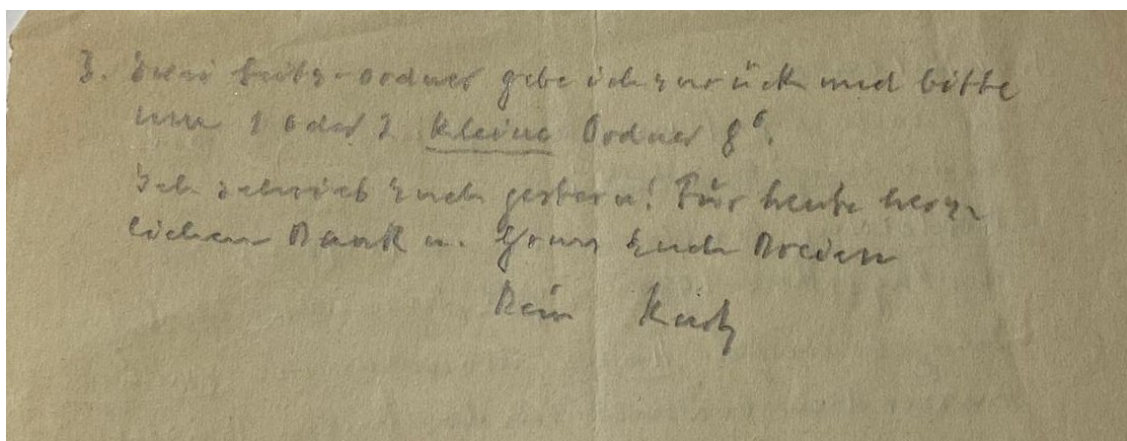 3. Zwei Leitz-Ordner gebe ich zurück und bitte
um 1 oder 2 kleine Ordner 8°.
Ich schrieb Euch gestern! Für heute herz-
lichen Dank u. Gruss Euch Dreien
Dein